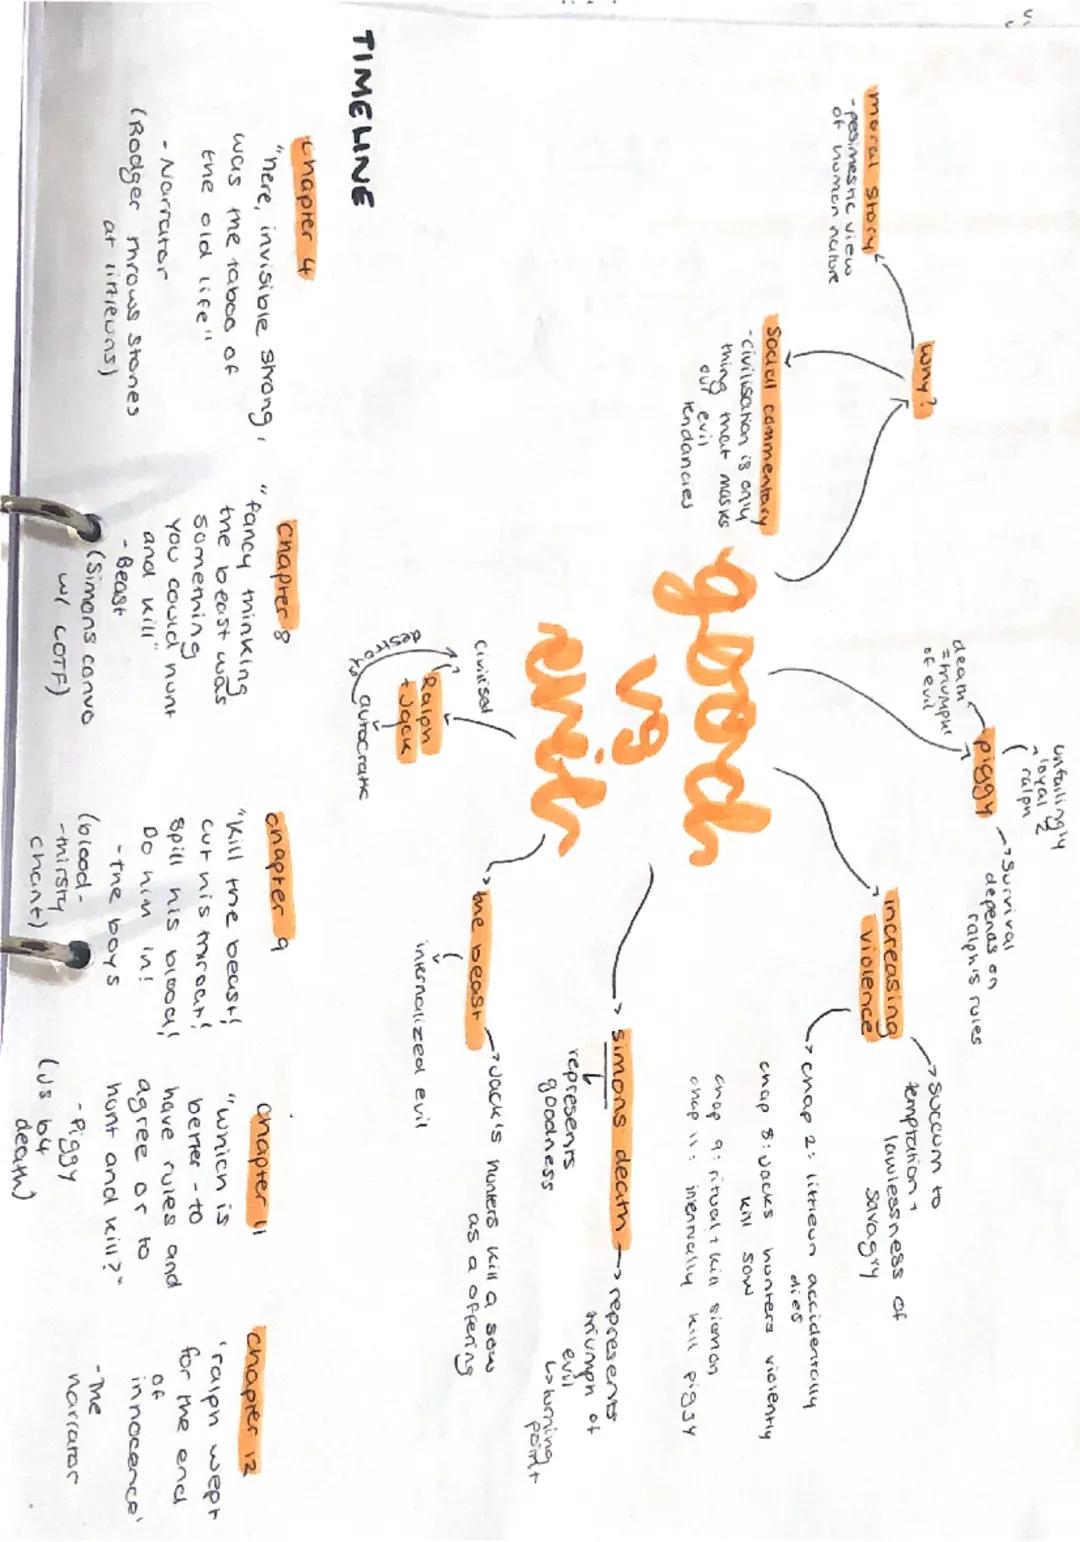 why?
moral story
-pesimestic view
of human nature
social commentary
-civilisation is only
thing that masks
our evil
tendancies
good
vs
evil
piggy
unfailingly
-loyal 2
ralph
death
=triumph
of evil
-> Survival
depends on
ralph's rules
increasing
violence
-> succum to
temptation,
lawlessness of
savagry
-> chap 2: littleun accidentally
dies
chap 8: Jacks hunters violently
kill sow
chap 9: ritual + kill siomon
chap 11: intennally kill piggy
simons death
represents
goodness
-> represents
triumph of
evil
↳ turning
point
the beast
-> Jack's hunters kill a sow
as a offering
internalized evil
Ralph
+ Jack
civilised
destroys
autocratic
TIMELINE
chapter 4
"here, invisible strong,
was the taboo of
the old life"
- Narrator
(Rodger throws stones
at littleuns)
chapter 8
"fancy thinking
the beast was
something
you could hunt
and kill"
- Beast
(Simons convo
w/ LOTF)
chapter 9
"Kill the beast!
cut his throat!
spill his blood!
Do him in!
- the boys
(blood-
-thirsty
chant)
chapter 11
"which is
better - to
have rules and
agree or to
hunt and kill?"
- Piggy
(Js b4
death)
chapter 12
'ralph wept
for the end
of
innocence'
- The
narrator